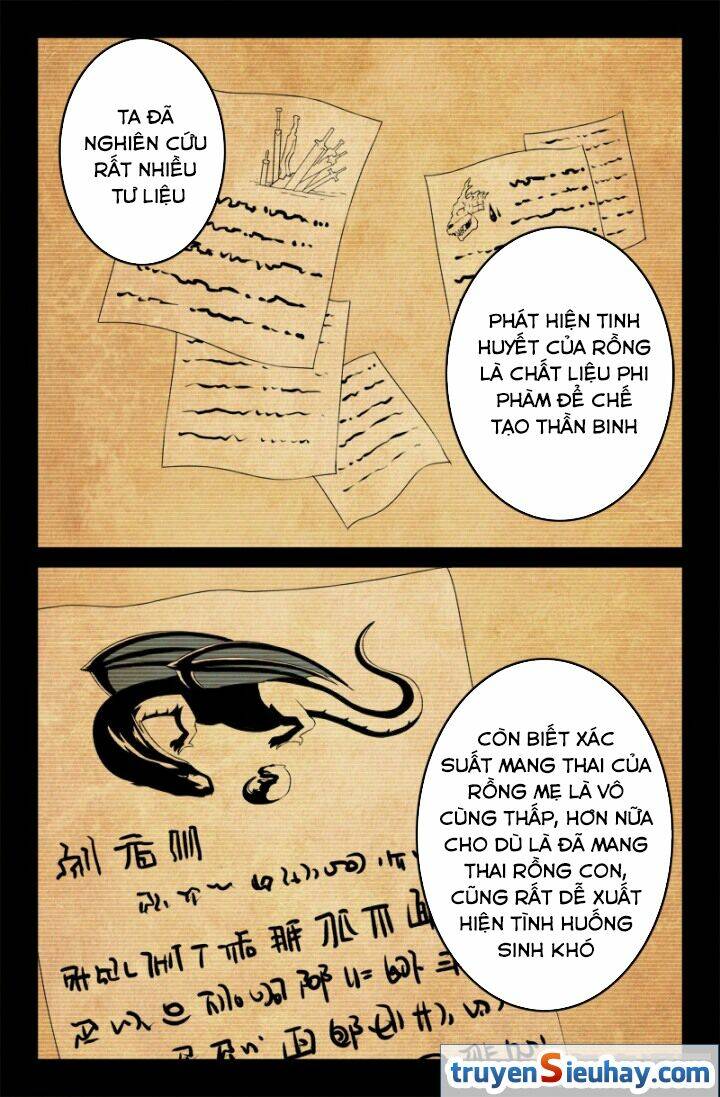 TA ĐÃ
NGHIÊN CỨU
RẤT NHIỀU
TƯ LIỆU
PHÁT HIỆN TINH
HUYẾT CỦA RỒNG
LÀ CHẤT LIỆU PHI
PHÀM ĐỂ CHẾ
TẠO THẦN BINH
CÒN BIẾT XÁC
SUẤT MANG THAI CỦA
RỒNG MẸ LÀ VÔ
CÙNG THẤP, HƠN NỮA
CHO DÙ LÀ ĐÃ MANG
THAI RỒNG CON,
CŨNG RẤT DỄ XUẤT
HIỆN TÌNH HUỐNG
SINH KHÓ
truyenSieuhay.com